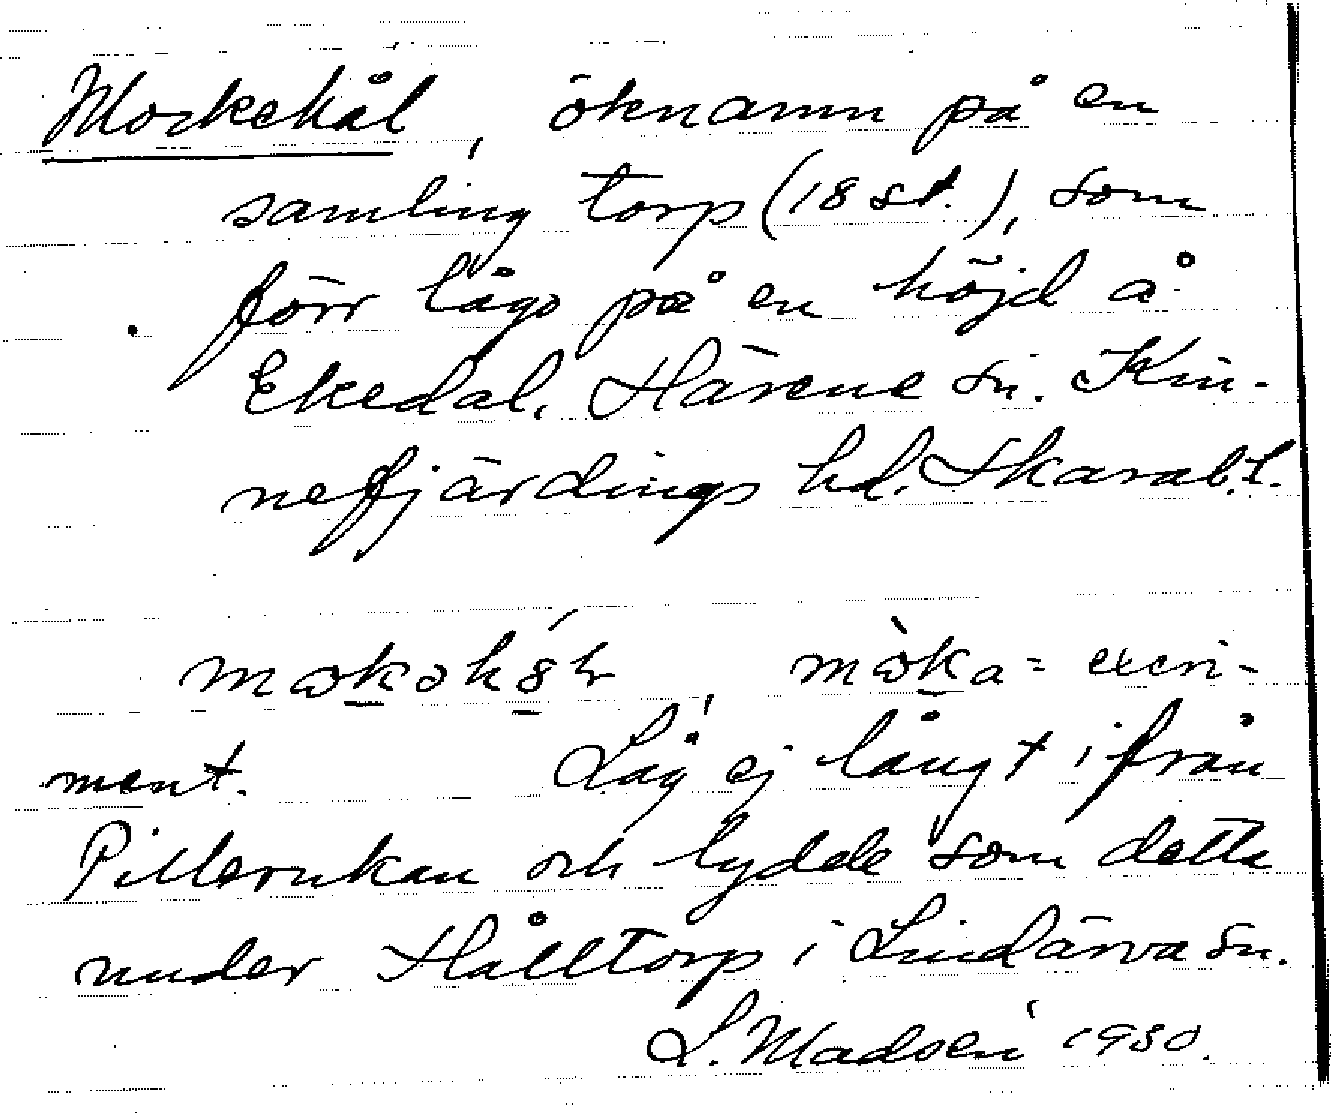 Mockekål, öknamn på en
samling torp (18 st.), som
förr lågo på en höjd å
Ekedal, Härene sn. Kin-
nefjärdings hd. Skarab.l.
mɷkək, mɷka = excri-
ment. Låg ej långt ifrån
Pillerukan och lydde som detta
under Hålltorp i Lindärva sn.
L. Madsén 1930.